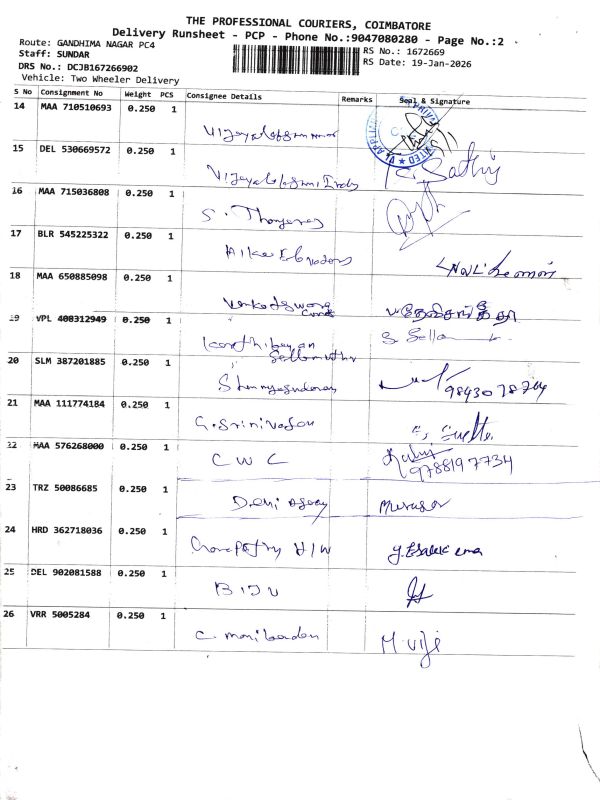 THE PROFESSIONAL COURIERS, COIMBATORE
Delivery Runsheet - PCP - Phone No.:9047080280 - Page No.:2
Route: GANDHIMA NAGAR PC4
Staff: SUNDAR
DRS No.: DCJB167266902
Vehicle: Two Wheeler Delivery
RS No.: 1672669
RS Date: 19-Jan-2026
S No Consignment No Weight PCS Consignee Details Remarks Seal & Signature
14 MAA 710510693 0.250 1
15 DEL 530669572 0.250 1
C. Sathij
16 MAA 715036808 0.250 1
S.
17 BLR 545225322 0.250 1
18 MAA 650885098 0.250 1
19 VPL 400312949 0.250 1
Karthikeyan
S. Sella
20 SLM 387201885 0.250 1
9843078704
21 MAA 111774184 0.250 1
G. Srinivasan
22 MAA 576268000 0.250 1
CWC
9788197734
23 TRZ 50086685 0.250 1
Murugan
24 HRD 362718036 0.250 1
H/W
25 DEL 902081588 0.250 1
BIJU
26 VRR 5005284 0.250 1
C. Manikandan M. Viji